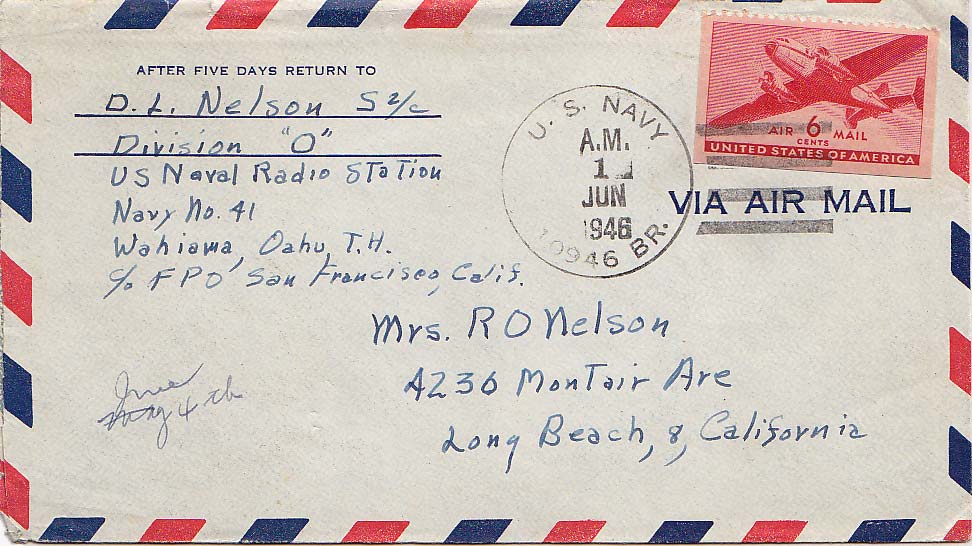 AFTER FIVE DAYS RETURN TO
D. L. Nelson S 2/c
Division "O"
US Naval Radio Station
Navy No. 41
Wahiawa, Oahu, T.H.
c/o FPO San Francisco, Calif.
U. S. NAVY
A.M.
1
JUN
1946
10946 BR.
AIR 6 MAIL
CENTS
UNITED STATES OF AMERICA
VIA AIR MAIL
Mrs. R O Nelson
4236 Montair Ave
Long Beach, 8, California
June
May 4 th